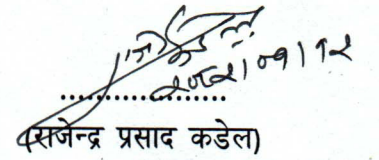 २०८२।०१।१२
....................
(राजेन्द्र प्रसाद कडेल)